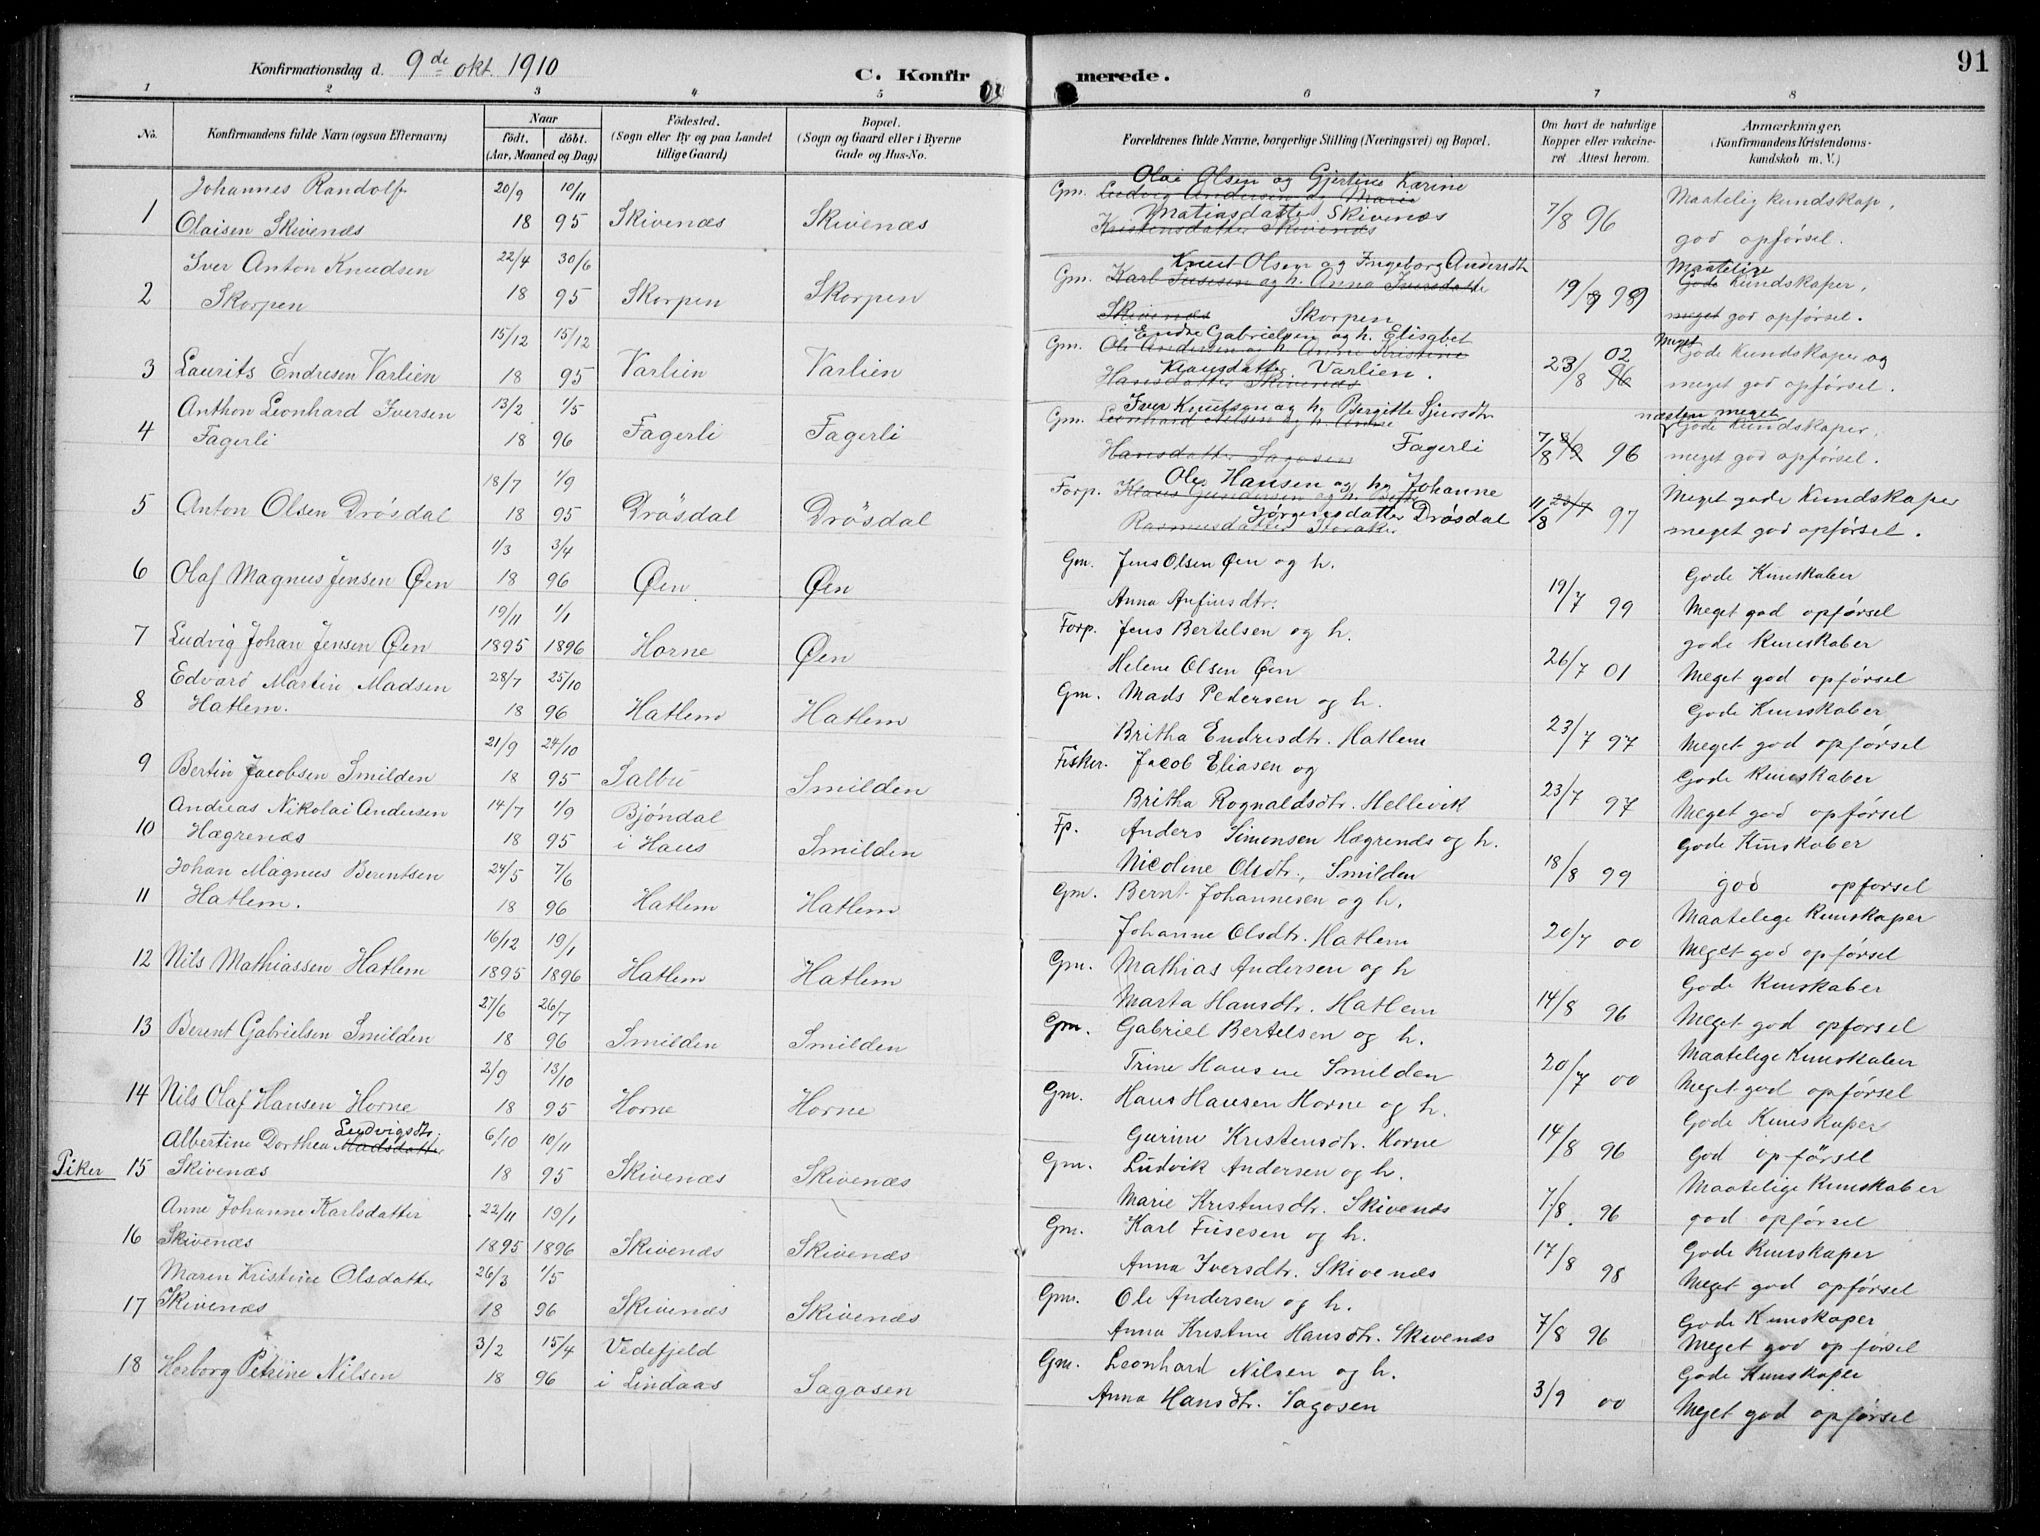 91
Konfirmationsdag d. 9de okt. 1910
C. Konfirmerede.
1 2 3 4 5 6 7 8
No. Konfirmandens fulde Navn (ogsaa Efternavn) Naar født. døbt. (Aar, Maaned og Dag) Fødested. (Sogn eller By og paa Landet tillige Gaard) Bopæl. (Sogn og Gaard eller i Byerne Gade og Hus-No. Forældrenes fulde Navne, borgerlige Stilling (Næringsvei) og Bopæl. Om havt de naturlige Kopper eller vakcineret Attest herom. Anmærkninger. (Konfirmandens Kristendomskundskab m. V.)
Johannes Randolf 20/9 10/11 Gm. Olai Olsen og Gjertine Karine Maatelig kundskap,
Ludvig Andersen og Marie
1 Olaisen Skivenæs 18 95 Skivenæs Skivenæs Matiasdatter Skivenæs 7/8 96 god opførsel.
Kristensdatter Skivenæs
Iver Anton Knudsen 22/4 30/6 Gm. Knut Olsen og Ingeborg Andersdtr Maatelige
Karl Fusesen og h. Anna Iversdatter Gode kundskaper,
2 Skorpen 18 95 Skorpen Skorpen Skivenæs Skorpen 19/8 989 meget god opførsel.
15/12 15/12 Gm. Endre Gabrielsen og h. Elisabet Meget
Ole Andersen og h. Anne Kristine Gode Kundskaper og
3 Laurits Endresen Varlien 18 95 Varlien Varlien Klausdatter Varlien. 23/8 02 96 meget god opførsel.
Hansdatter Skivenæs
Anthon Leonhard Iversen 13/2 1/5 Gm. Iver Knutsen og h. Bergitte Sjursdtr næsten meget
Leonhard Nilsen og h. Anna Gode Kundskaper,
4 Fagerli 18 96 Fagerli Fagerli Hansdatter Sagosen Fagerli 7/8 96 meget god opførsel.
18/7 1/9 Forp. Ole Hansen og h. Johanne Meget gode Kundskaper
5 Anton Olsen Drösdal 18 95 Drösdal Drösdal Jørgensdatter Drösdal 11/8 23/7 97 meget god opførsel.
1/3 3/4 Gm. Jens Olsen Øen og h. Gode Kunskaber
6 Olaf Magnus Jensen Øen 18 96 Øen Øen Anna Anfinsdtr. 19/7 99 Meget god opförsel
19/11 1/1 Forp. Jens Bertelsen og h. gode Kunskaber
7 Ludvig Johan Jensen Øen 1895 1896 Horne Øen Helene Olsen Øen 26/7 01 Meget god opførsel
Edvard Martin Madsen 28/7 25/10 Gm. Mads Pedersen og h. Gode Kunskaber
8 Hatlem. 18 96 Hatlem Hatlem Britha Endresdtr. Hatlem 23/7 97 Meget god opførsel
21/9 24/10 Fisker. Jacob Eliasen og Gode Kunskaber
9 Bertin Jacobsen Smilden 18 95 Salbu Smilden Britha Rognaldsdtr. Hellevik 23/7 97 Meget god opførsel
Andreas Nikolai Andersen 14/7 1/9 Bjøndal Fp. Anders Simonsen Hægrenæs og h. Gode Kunskaber
10 Hægrenæs 18 95 i Haus Smilden Nicoline Olsdtr., Smilden 18/8 99 god opførsel
Johan Magnus Berentsen 24/5 7/6 Gm. Bernt Johannesen og h. Maatelige Kunskaper
11 Hatlem. 18 96 Hatlem Hatlem Johanne Olsdtr. Hatlem 20/7 00 Meget god opførsel
16/12 19/1 Gm. Mathias Andersen og h Gode Kunskaber
12 Nils Mathiassen Hatlem 1895 1896 Hatlem Hatlem Marta Hansdtr. Hatlem 14/8 96 Meget god opførsel
27/6 26/7 Gm. Gabriel Bertelsen og h. Maatelige Kunskaber
13 Berent Gabrielsen Smilden 18 96 Smilden Smilden Trine Hansine Smilden 20/7 00 Meget god opførsel
2/9 13/10 Gm. Hans Hansen Horne og h. Gode Kunskaper
14 Nils Olaf Hansen Horne 18 95 Horne Horne Gurine Kristensdtr. Horne 14/8 96 God opførsel
Albertine Dorthea Ludvigsdtr. Madsdatter 6/10 10/11 Gm. Ludvik Andersen og h. Maatelige Kunskaber
Piker 15 Skivenæs 18 95 Skivenæs Skivenæs Marie Kristensdtr. Skivenæs 7/8. 96 god opførsel
Anne Johanne Karlsdatter 22/11 19/1 Gm. Karl Fusesen og h. Gode Kunskaper
16 Skivenæs 1895 1896 Skivenæs Skivenæs Anna Iversdtr. Skivenæs 17/8 98 Meget god opførsel
Maren Kristine Olsdatter 26/3 1/5 Gm. Ole Andersen og h. Gode Kunskaper
17 Skivenæs 18 96 Skivenæs Skivenæs Anna Kristine Hansdtr. Skivenæs 7/8 96 Meget god opførsel
3/2 15/4 Vedefjeld Gm. Leonhard Nilsen og h. Gode Kunskaper
18 Herborg Petrine Nilsen 18 96 i Lindaas Sagosen Anna Hansdtr. Sagosen 3/9 00 Meget god opførsel